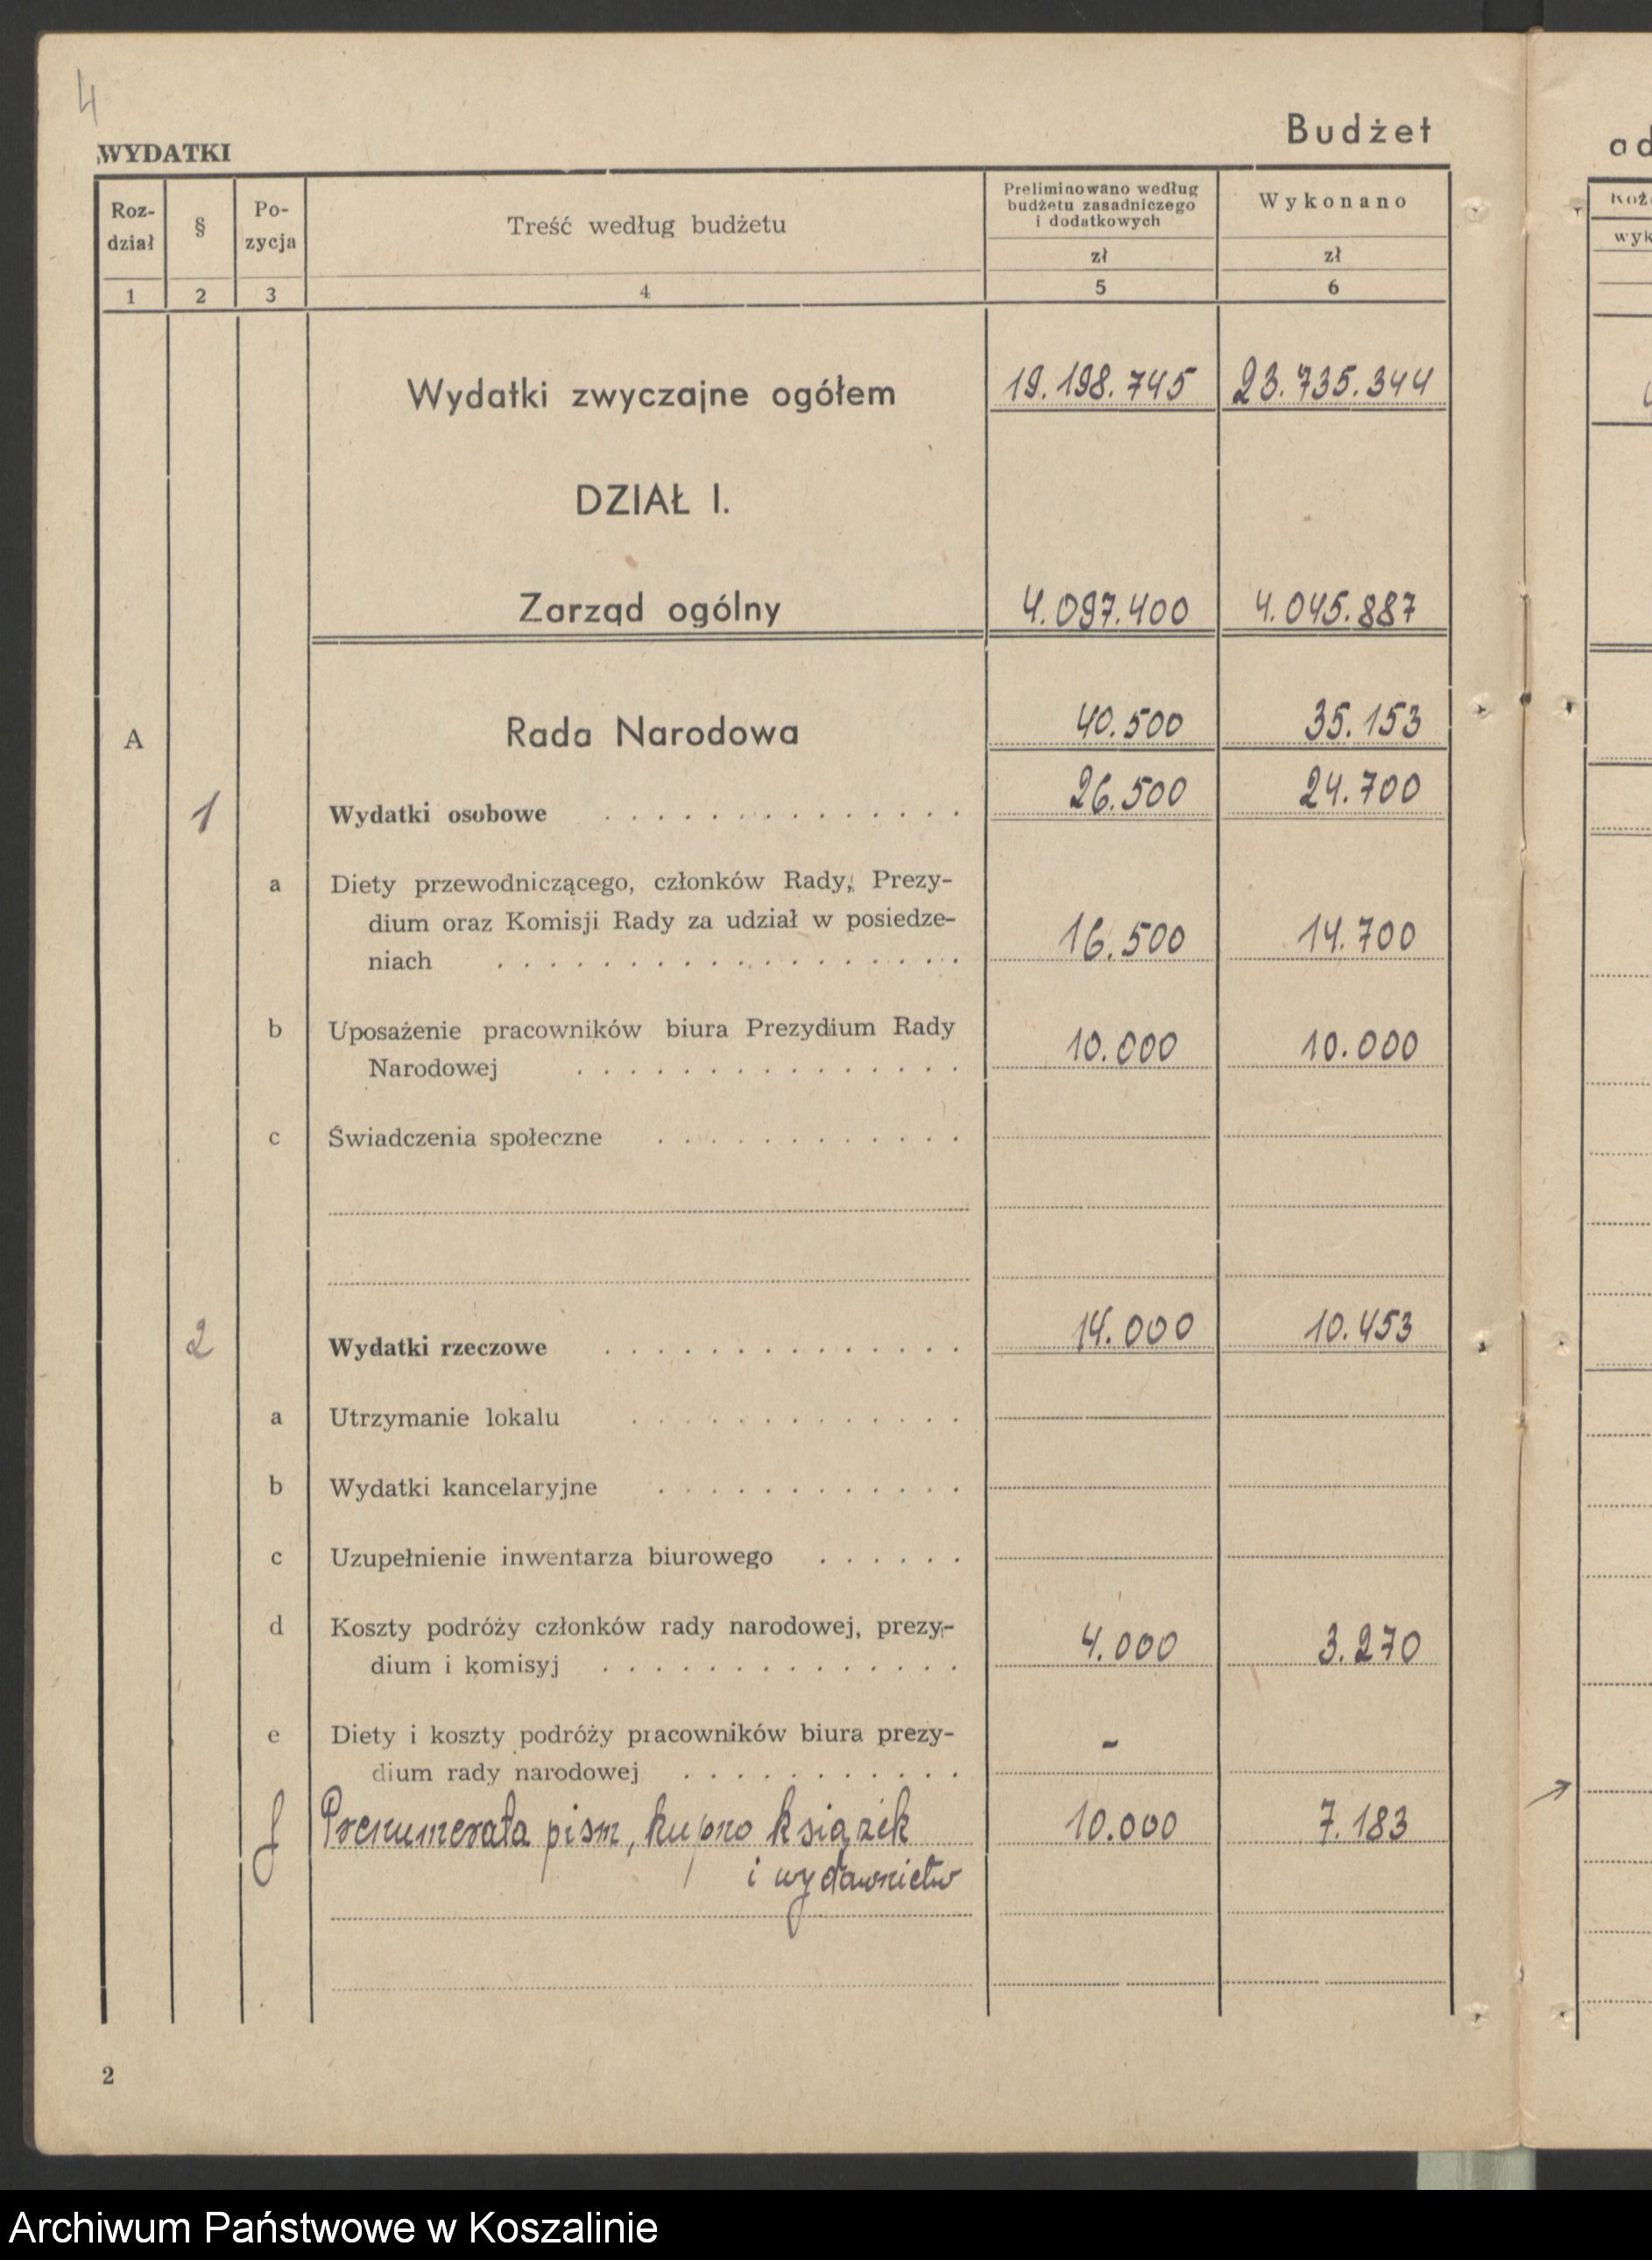 4
WYDATKI
Budżet
Roz-
dział
§
Po-
zycja
Treść według budżetu
Preliminowano według
budżetu zasadniczego
i dodatkowych
Wykonano
zł
zł
1 2 3 4 5 6
Wydatki zwyczajne ogółem 19.198.745 23.735.344
DZIAŁ I.
Zarząd ogólny 4.097.400 4.045.887
A Rada Narodowa 40.500 35.153
1 Wydatki osobowe 26.500 24.700
a Diety przewodniczącego, członków Rady, Prezy-
dium oraz Komisji Rady za udział w posiedze-
niach 16.500 14.700
b Uposażenie pracowników biura Prezydium Rady
Narodowej 10.000 10.000
c Świadczenia społeczne
2 Wydatki rzeczowe 14.000 10.453
a Utrzymanie lokalu
b Wydatki kancelaryjne
c Uzupełnienie inwentarza biurowego
d Koszty podróży członków rady narodowej, prezy-
dium i komisyj 4.000 3.270
e Diety i koszty podróży pracowników biura prezy-
dium rady narodowej -
f Prenumerata pism, kupno książek 10.000 7.183
i wydawnictw
2
ad
wyk
Archiwum Państwowe w Koszalinie